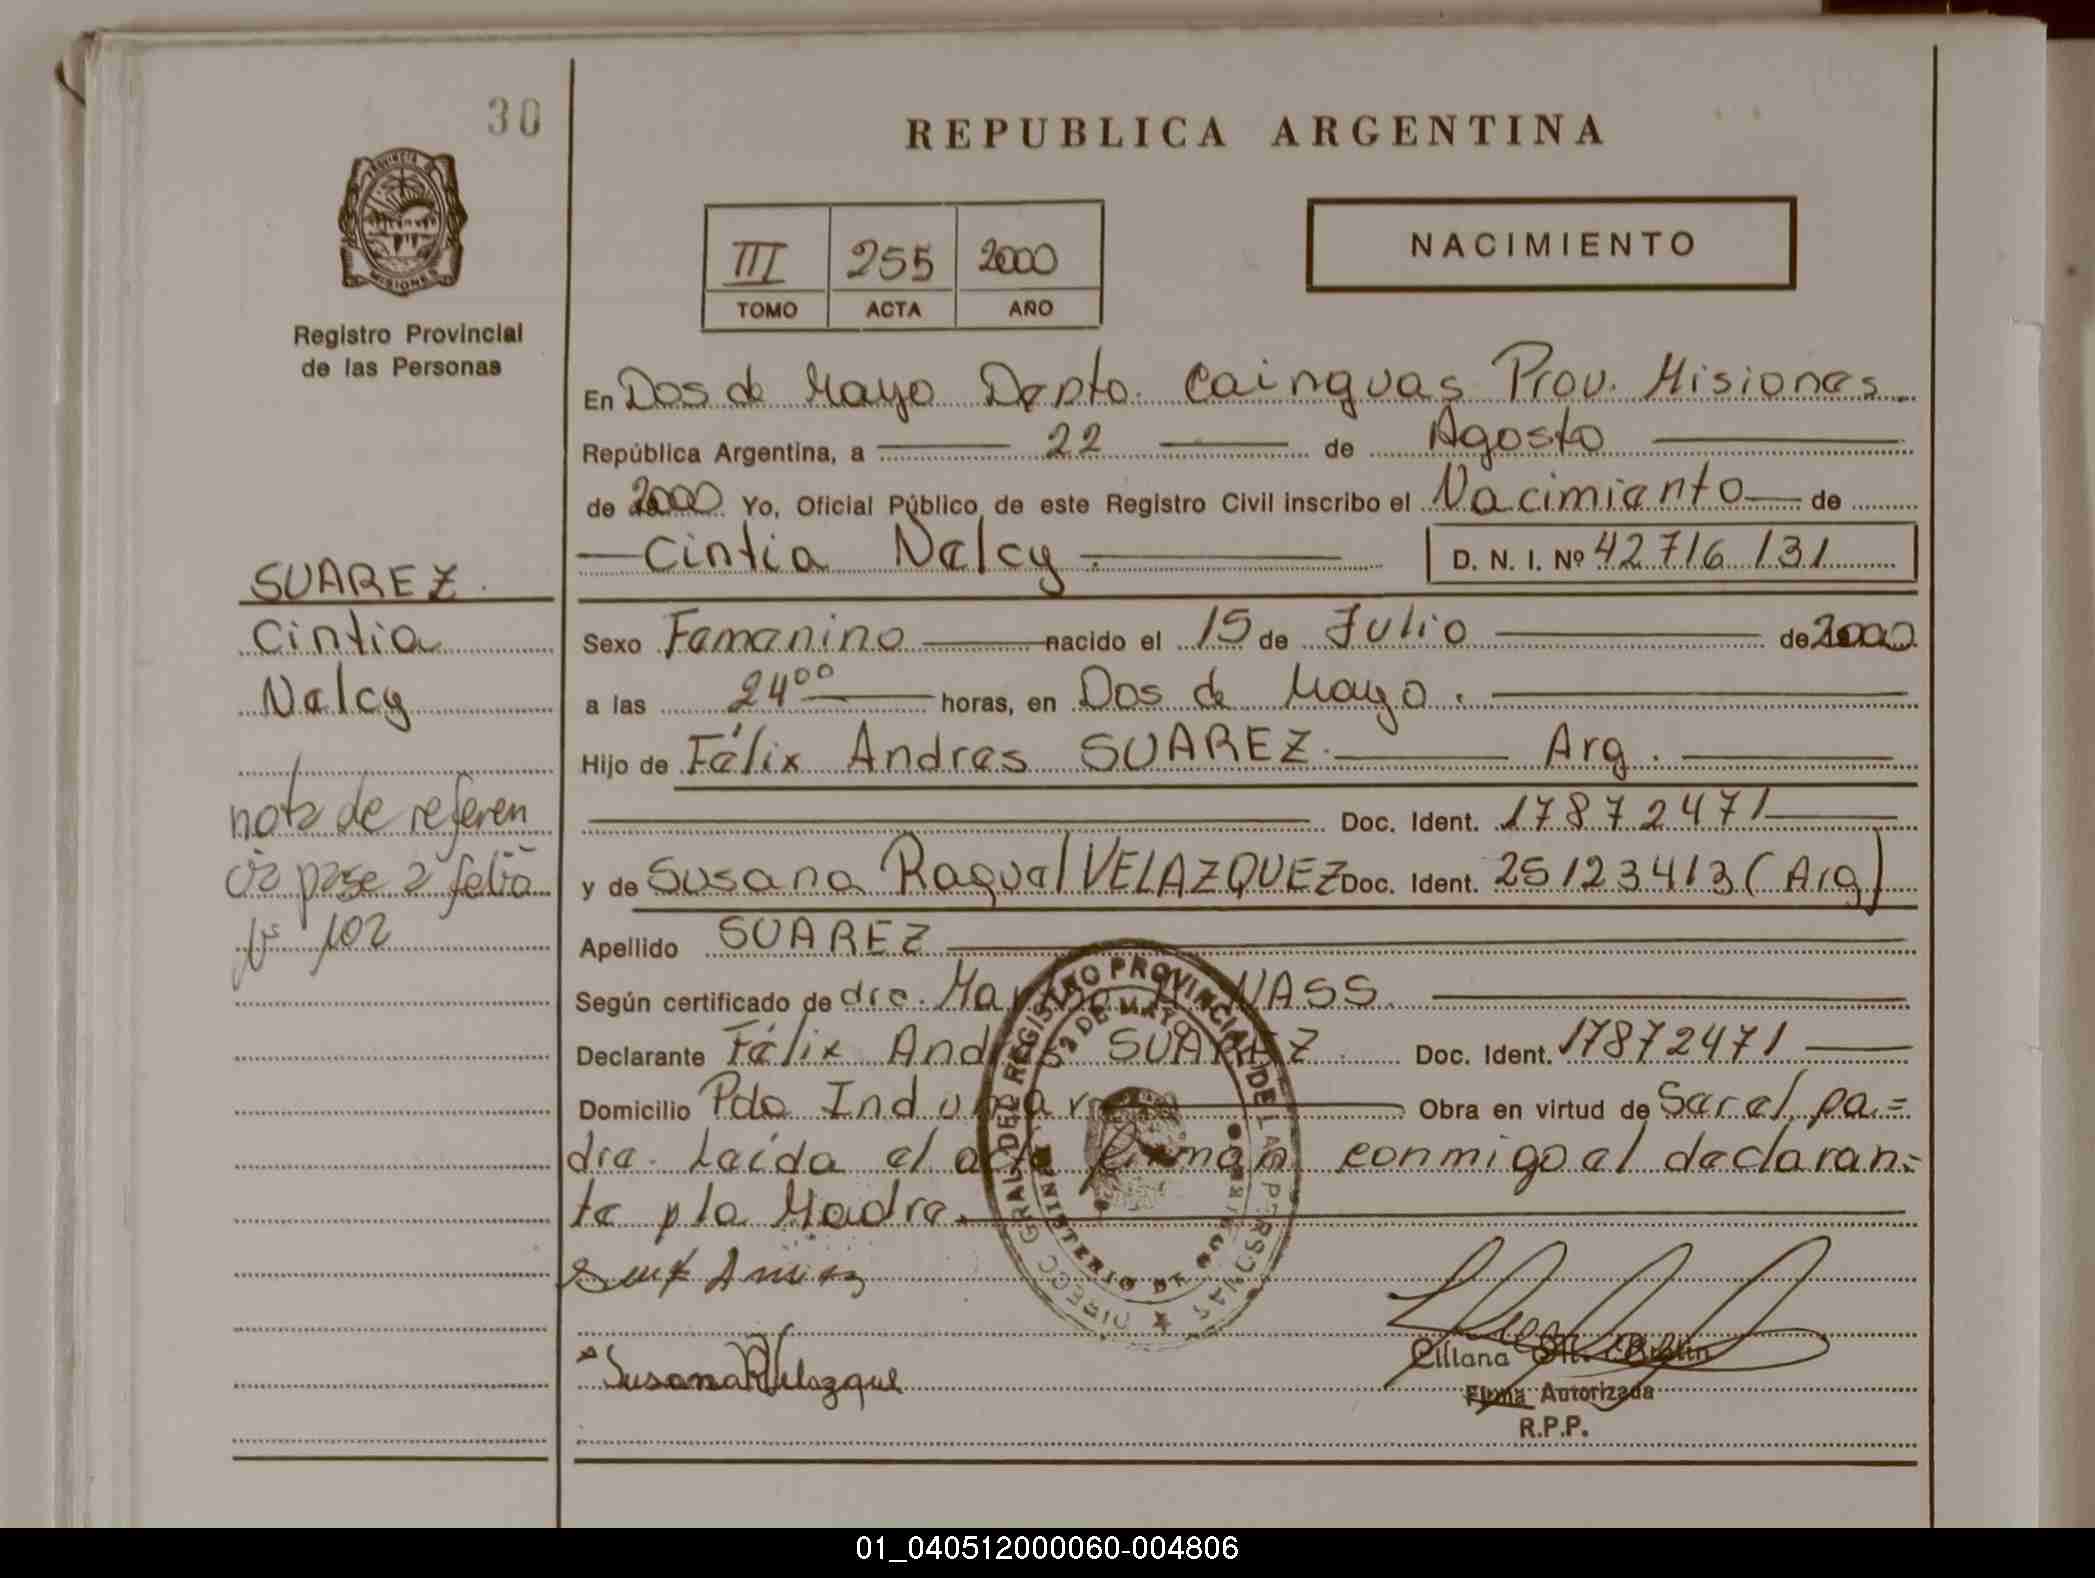 30
REPUBLICA ARGENTINA
PROVINCIA DE MISIONES
Registro Provincial
de las Personas
III 255 2000
TOMO ACTA AÑO
NACIMIENTO
En Dos de Mayo Depto. Cainguas Prov. Misiones
República Argentina, a 22 de Agosto
de 2000 Yo, Oficial Público de este Registro Civil inscribo el Nacimiento de
Cintia Nelcy.
D. N. I. Nº 42716131
SUAREZ.
Cintia
Nelcy
nota de referen
cia pase a folio
Nº 102
Sexo Femenino nacido el 15 de Julio de 2000
a las 24⁰⁰ horas, en Dos de Mayo.
Hijo de Félix Andres SUAREZ. Arg.
Doc. Ident. 17872471
y de Susana Raquel VELAZQUEZ Doc. Ident. 25123413 (Arg)
Apellido SUAREZ
Según certificado de dra. NASS.
Declarante Félix Andres SUAREZ Doc. Ident. 17872471
Domicilio Pdo Obra en virtud de Ser el pa=
dre. Leída el acta firman conmigo el declaran-
te y la Madre.
Susana R Velazque
DIRECC GRAL DEL REGISTRO PROVINCIAL DE LAS PERSONAS
2 DE MAYO
MINISTERIO DE GOBIERNO
Firma Autorizada
R.P.P.
01_040512000060-004806